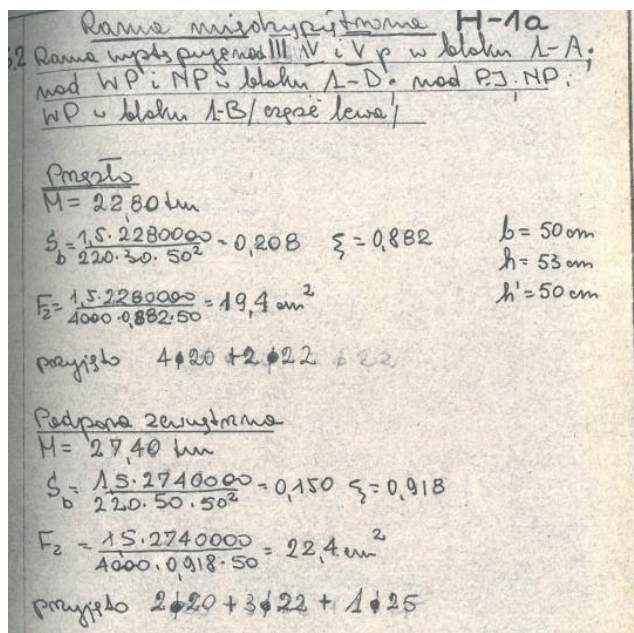 Rama międzypiętrowa H-1a
5.2 Rama występuje nad III IV i V p w bloku 1-A.
nad WP i NP w bloku 1-D. nad P.J. NP.
WP w bloku 1-B/część lewa/
Przęsło
M = 22,80 tm
S_b = 1,5·2280000 / 220·30·50² = 0,208 ξ = 0,882
b = 50 cm
h = 53 cm
h' = 50 cm
F_z = 1,5·2280000 / 4000·0,882·50 = 19,4 cm²
przyjęto 4ϕ20 + 2ϕ22
Podpora zewnętrzna
M = 27,40 tm
S_b = 1,5·2740000 / 220·50·50² = 0,150 ξ = 0,918
F_z = 1,5·2740000 / 4000·0,918·50 = 22,4 cm²
przyjęto 2ϕ20 + 3ϕ22 + 1ϕ25